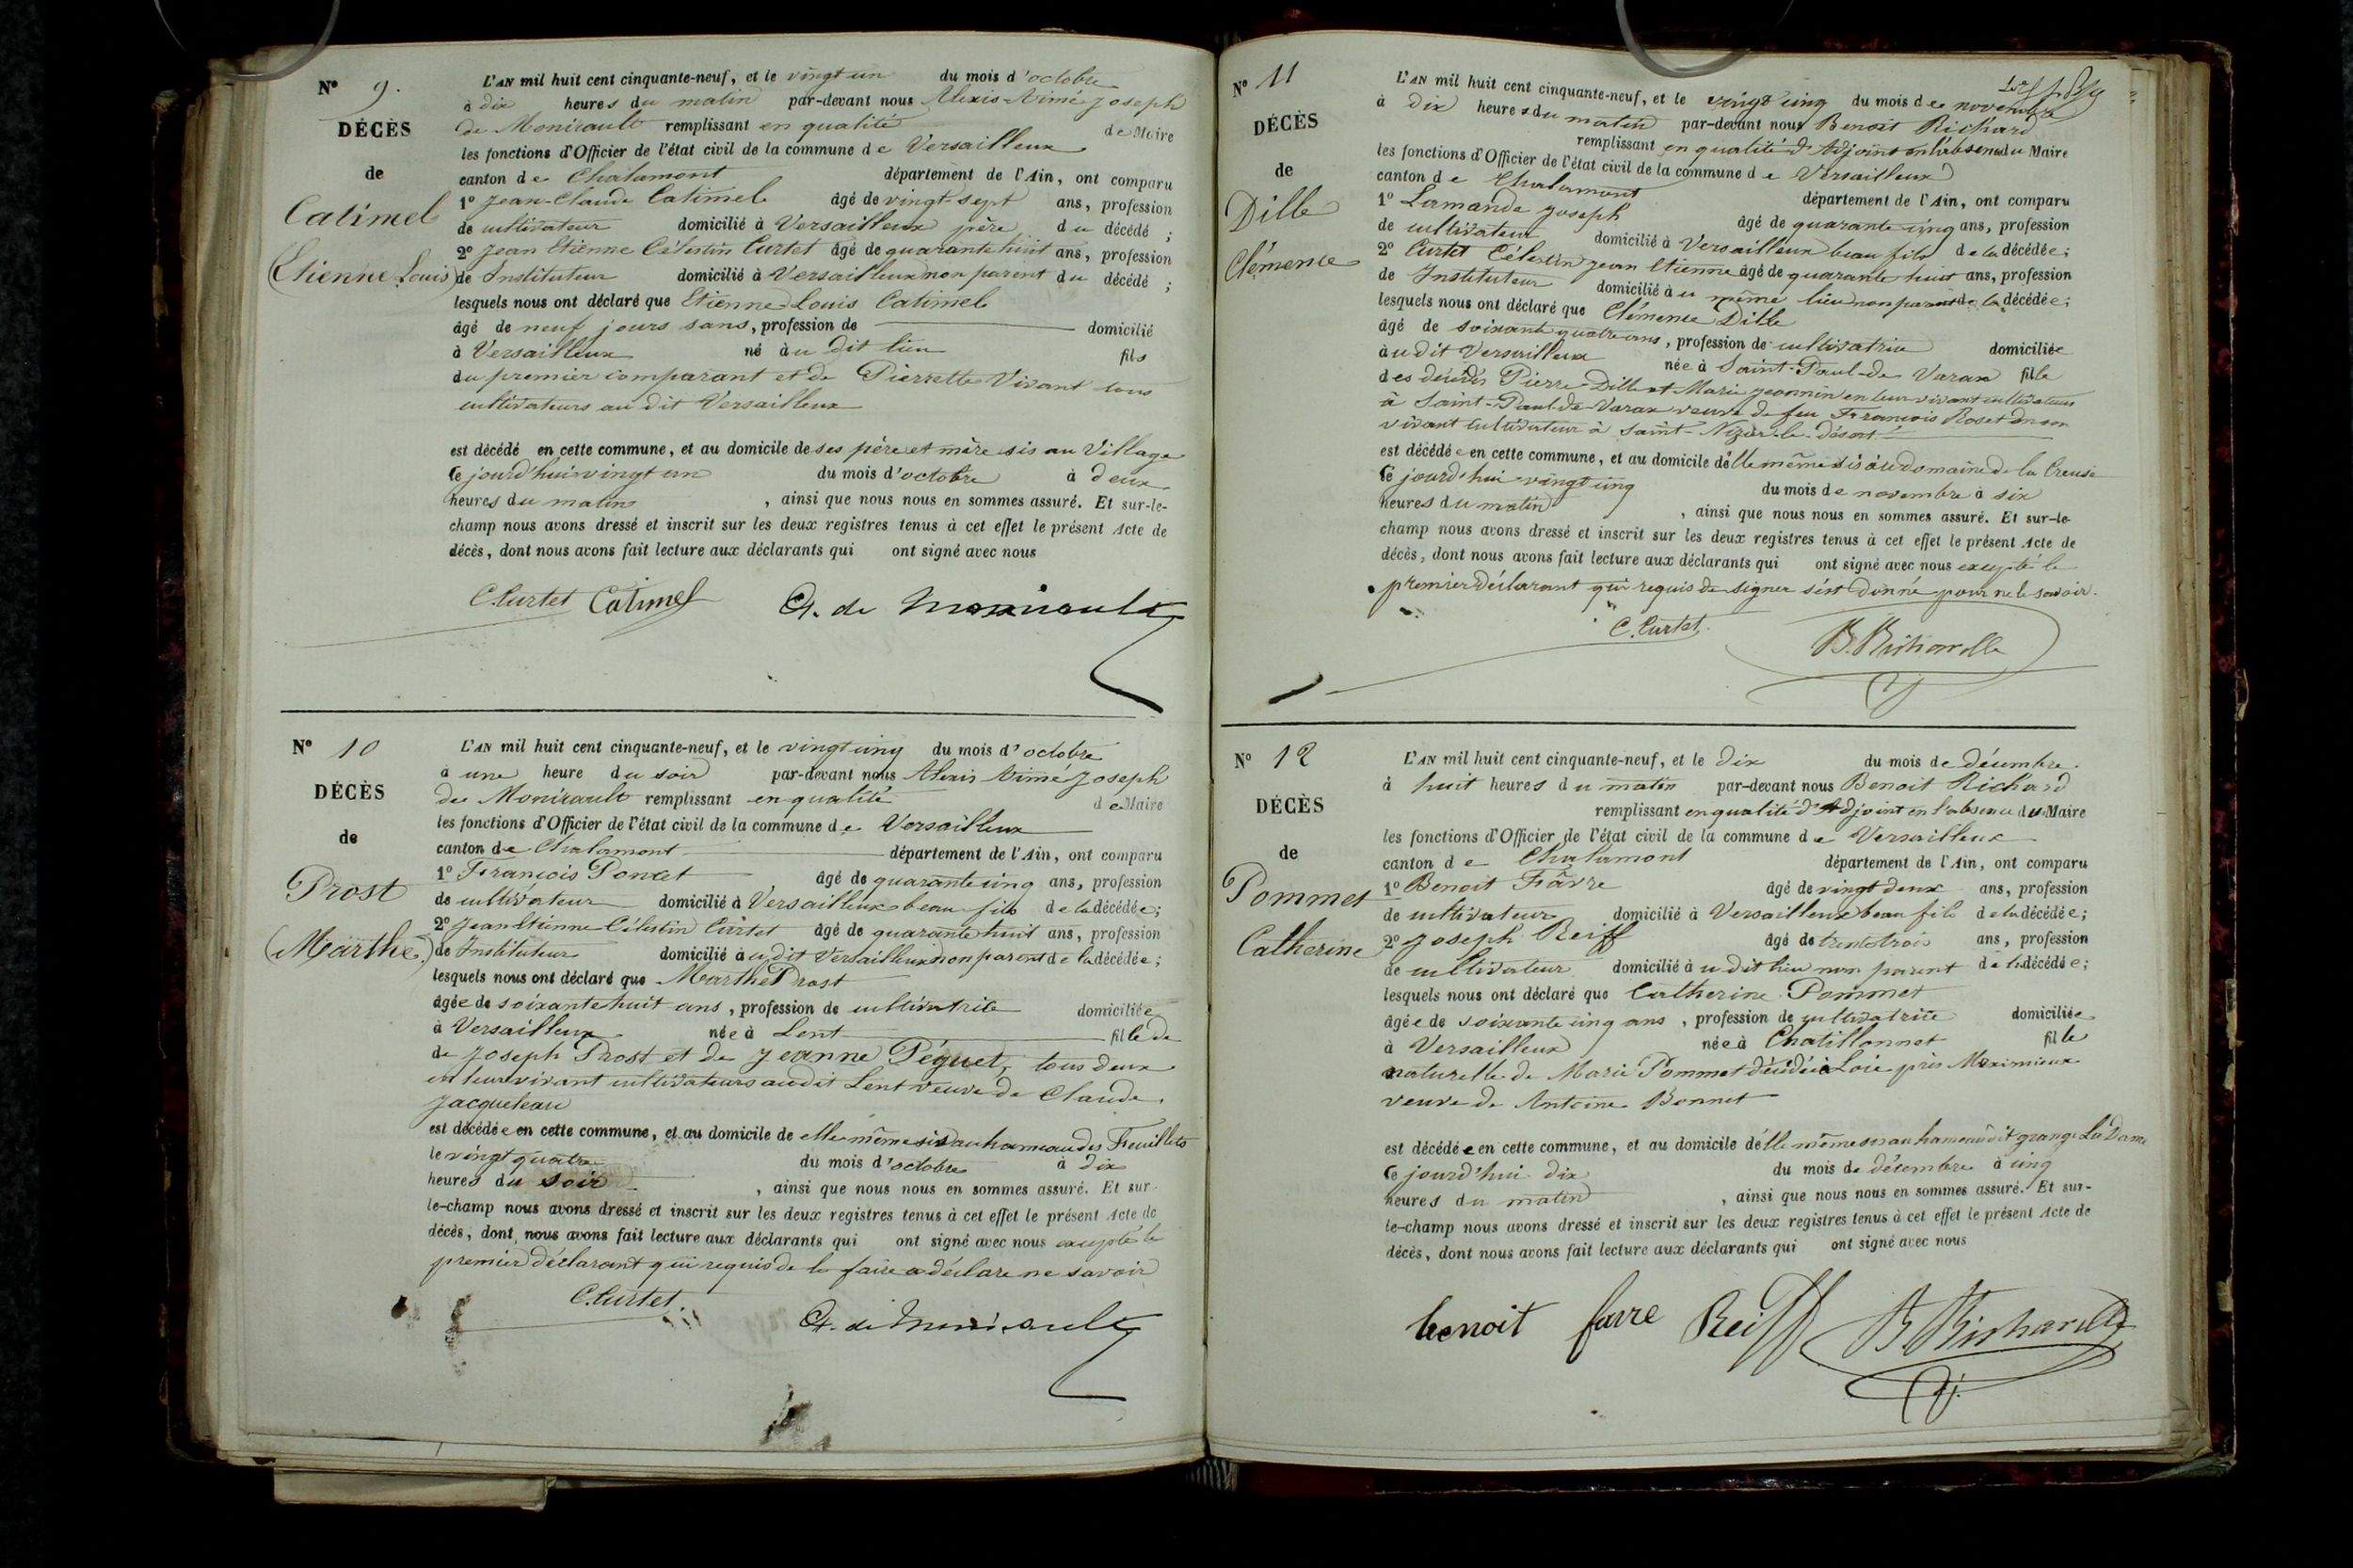 N° 9.
DÉCÈS
de
Catimel
(Etienne Louis)
L'AN mil huit cent cinquante-neuf, et le vingt un du mois d'octobre
à dix heures du matin par-devant nous Alexis Aimé Joseph
de Monicault remplissant en qualité de Maire
les fonctions d'Officier de l'état civil de la commune de Versailleux
canton de Chalamont département de l'Ain, ont comparu
1° Jean-Claude Catimel âgé de vingt-sept ans, profession
de cultivateur domicilié à Versailleux père du décédé ;
2° Jean Etienne Célestin Curtet âgé de quarante huit ans, profession
de Instituteur domicilié à Versailleux non parent du décédé ;
lesquels nous ont déclaré que Etienne-Louis Catimel
âgé de neuf jours sans, profession de domicilié
à Versailleux né au dit lieu fils
du premier comparant et de Pierrette Vivant tous
cultivateurs au dit Versailleux
est décédé en cette commune, et au domicile de ses père et mère sis au Village
Ce jourd'hui vingt un du mois d'octobre à deux
heures du matin, ainsi que nous nous en sommes assuré. Et sur-le-
champ nous avons dressé et inscrit sur les deux registres tenus à cet effet le présent Acte de
décès, dont nous avons fait lecture aux déclarants qui ont signé avec nous
C. Curtet Catimel A. de Monicault
N° 10
DÉCÈS
de
Prost
(Marthe)
L'AN mil huit cent cinquante-neuf, et le vingt cinq du mois d'octobre
à une heure du soir par-devant nous Alexis Aimé Joseph
de Monicault remplissant en qualité de Maire
les fonctions d'Officier de l'état civil de la commune de Versailleux
canton de Chalamont département de l'Ain, ont comparu
1° François Poncet âgé de quarante cinq ans, profession
de cultivateur domicilié à Versailleux beau fils de la décédée ;
2° Jean Etienne Célestin Curtet âgé de quarante huit ans, profession
de Instituteur domicilié au dit Versailleux non parent de la décédée ;
lesquels nous ont déclaré que Marthe Prost
âgée de soixante huit ans, profession de cultivatrice domiciliée
à Versailleux née à Lent fille de
de Joseph Prost et de Jeanne Péguet, tous deux
en leur vivant cultivateurs audit Lent veuve de Claude
est décédée en cette commune, et au domicile de elle même sis au hameau des Feuillets
le vingt quatre du mois d'octobre à dix
heures du soir, ainsi que nous nous en sommes assuré. Et sur-
le-champ nous avons dressé et inscrit sur les deux registres tenus à cet effet le présent Acte de
décès, dont nous avons fait lecture aux déclarants qui ont signé avec nous excepté le
premier déclarant qui requis de le faire a déclaré ne savoir
C. Curtet. A. de Monicault
N° 11
DÉCÈS
de
Dille
Clémence
L'AN mil huit cent cinquante-neuf, et le vingt cinq du mois de novembre
à dix heures du matin par-devant nous Benoit Richard
remplissant en qualité d'Adjoint en l'absence du Maire
les fonctions d'Officier de l'état civil de la commune de Versailleux
canton de Chalamont département de l'Ain, ont comparu
1° Lamande Joseph âgé de quarante cinq ans, profession
de cultivateur domicilié à Versailleux beau fils de la décédée ;
2° Curtet Célestin Jean Etienne âgé de quarante huit ans, profession
de Instituteur domicilié au même lieu non parent de la décédée ;
lesquels nous ont déclaré que Clémence Dille
âgé de soixante quatre ans, profession de cultivatrice domiciliée
audit Versailleux née à Saint-Paul-de Varax fille
des décédés Pierre Dille et Marie Jeannin en leur vivant cultivateurs
à Saint-Paul-de-Varax veuve de feu François Roset en son
vivant cultivateur à Saint-Nizier-le-désert
est décédée en cette commune, et au domicile d'elle même sis au domaine de la Creuse
Ce jourd'hui vingt cinq du mois de novembre à six
heures du matin, ainsi que nous nous en sommes assuré. Et sur-le-
champ nous avons dressé et inscrit sur les deux registres tenus à cet effet le présent Acte de
décès, dont nous avons fait lecture aux déclarants qui ont signé avec nous excepté le
premier déclarant qui requis de signer s'est donné pour ne le savoir.
C. Curtet. B. Richard
N° 12
DÉCÈS
de
Pommet
Catherine
L'AN mil huit cent cinquante-neuf, et le dix du mois de décembre.
à huit heures du matin par-devant nous Benoit Richard
remplissant en qualité d'Adjoint en l'absence du Maire
les fonctions d'Officier de l'état civil de la commune de Versailleux
canton de Chalamont département de l'Ain, ont comparu
1° Benoit Fâvre âgé de vingt deux ans, profession
de cultivateur domicilié à Versailleux beau fils de la décédée ;
2° Joseph Reiff âgé de trente trois ans, profession
de cultivateur domicilié au dit lieu non parent de la décédée ;
lesquels nous ont déclaré que Catherine Pommet
âgée de soixante cinq ans, profession de cultivatrice domiciliée
à Versailleux née à Chatillonnet fille
naturelle de Marie Pommet décédée à Loie près Meximieux
veuve de Antoine Bonnet
est décédée en cette commune, et au domicile d'elle même sis au hameau dit grange La Dame
Ce jourd'hui dix du mois de décembre à cinq
heures du matin, ainsi que nous nous en sommes assuré. Et sur-
le-champ nous avons dressé et inscrit sur les deux registres tenus à cet effet le présent Acte de
décès, dont nous avons fait lecture aux déclarants qui ont signé avec nous
benoit favre Reiff B Richard